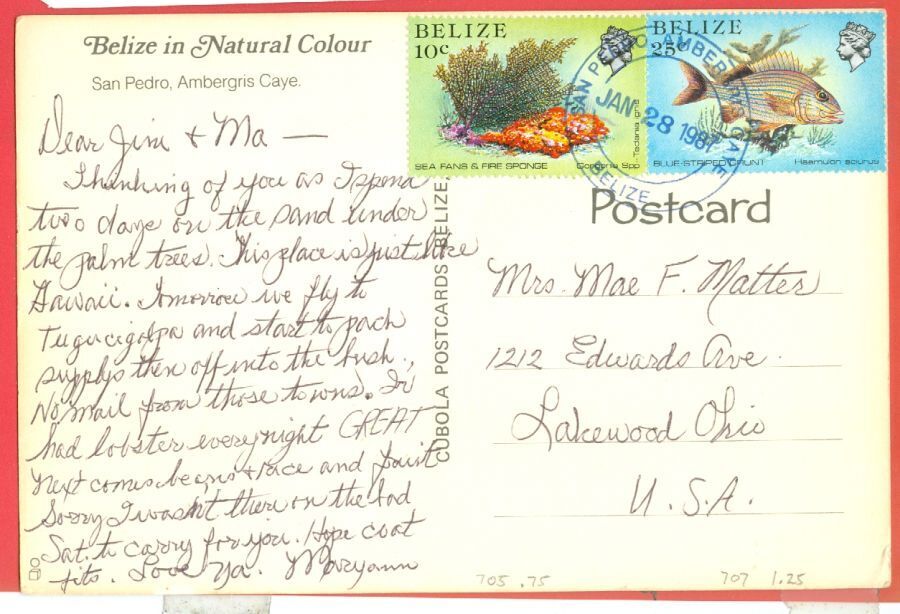 Belize in Natural Colour
San Pedro, Ambergris Caye.
Dear Jim + Ma —
Thinking of you as I spend
two days on the sand under
the palm trees. This place is just like
Hawaii. Tomorrow we fly to
Tugucigalpa and start to pack
supplys then off into the bush.
No mail from those towns.
had lobster every night GREAT
Next comes beans + race and fruit
Sorry I wasn't there on the bad
Sat. to carry for you. Hope coat
fits. Love Ya. Maryann
CUBOLA POSTCARDS BELIZE.
BELIZE
10c
SEA FANS & FIRE SPONGE
Gorgonia Spp
Tedania ignis
BELIZE
25c
BLUE-STRIPED GRUNT
Haemulon sciurus
SAN PEDRO AMBERGRIS CAYE
JAN 28 1987
BELIZE
Postcard
Mrs. Mae F. Matter
1212 Edwards Ave.
Lakewood Ohio
U.S.A.
705 .75
707 1.25